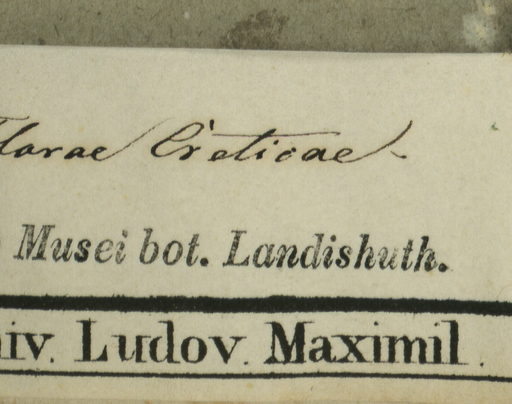 Florae Creticae.
Musei bot. Landishuth.
niv. Ludov. Maximil.